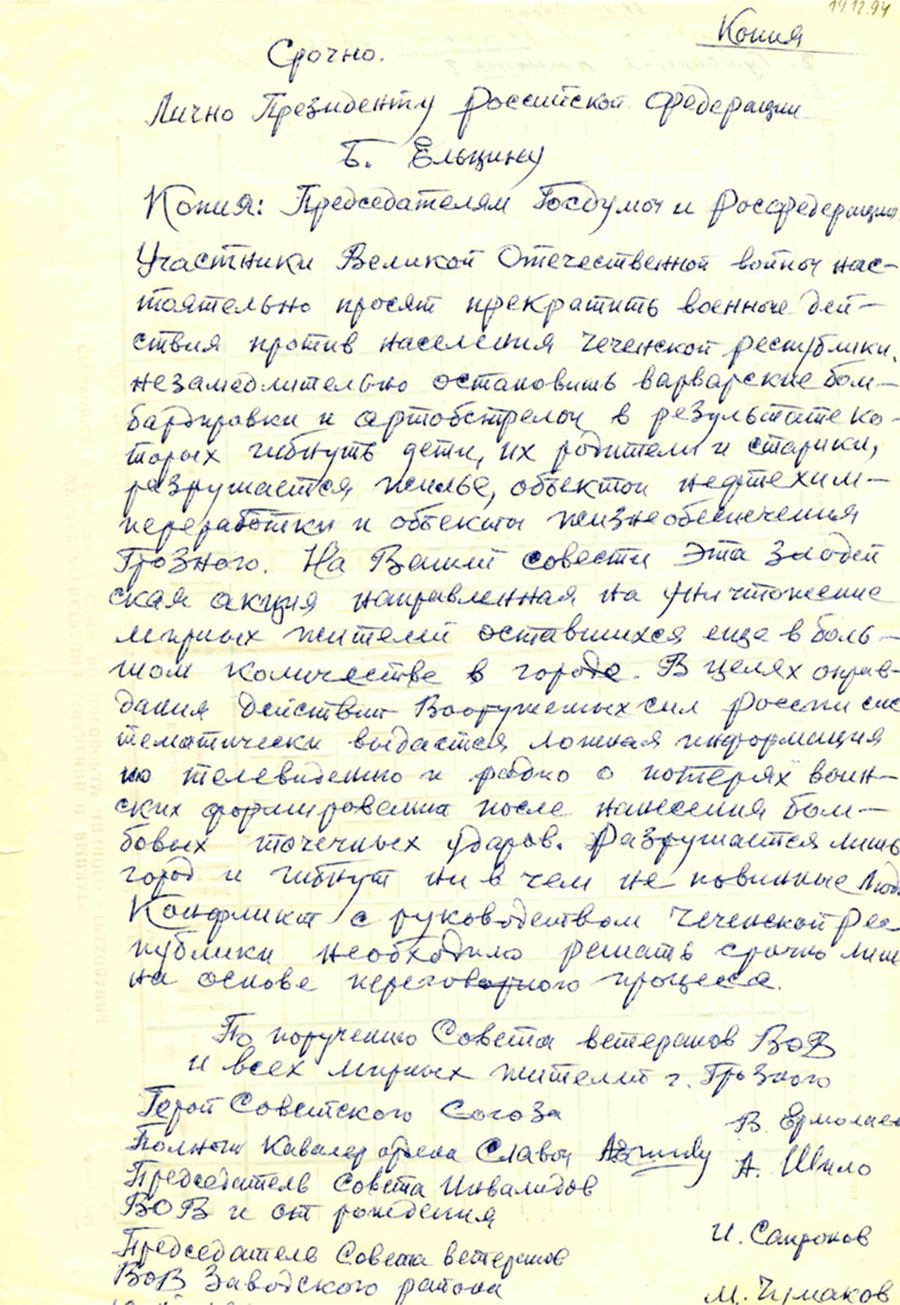 19.12.94
Копия
Срочно.
Лично Президенту Российской Федерации
Б. Ельцину
Копия: Председателям Госдумы и Росфедерации
Участники Великой Отечественной войны нас-
тоятельно просят прекратить военные дей-
ствия против населения Чеченской республики,
незамедлительно остановить варварские бом-
бардировки и артобстрелы в результате ко-
торых гибнуть дети, их родители и старики,
разрушается жилье, объекты нефтехим-
переработки и объекты жизнеобеспечения
Грозного. На Вашей совести эта злодей
ская акция направленная на уничтожение
мирных жителей оставшихся еще в боль-
шом количестве в городе. В целях оправ-
дания действий Вооруженных сил России сис
тематически выдается ложная информация
по телевидению и радио о потерях воин-
ских формирований после нанесения бом-
бовых точечных ударов. Разрушается лишь
город и гибнут ни в чем не повинные люд
Конфликт с руководством Чеченской Рес
публики необходимо решать срочно лиш
на основе переговорного процесса.
По поручению Совета ветеранов ВОВ
и всех мирных жителей г. Грозного
Герой Советского Союза
В. Ермолаев
Полный Кавалер ордена Славы
А. Шило
Председатель Совета Инвалидов
ВОВ и от рождения
И. Сапронов
Председатель Совета ветеранов
ВОВ Заводского района
М. Чумаков